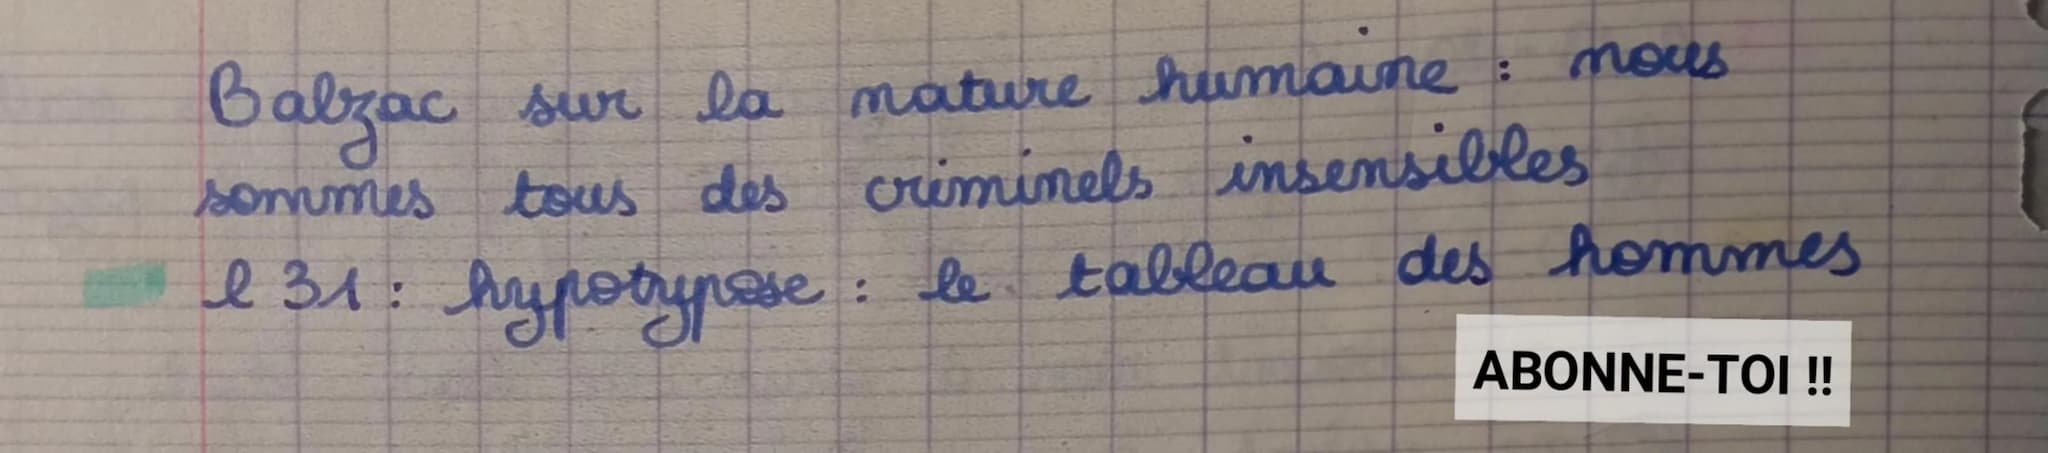 Balzac sur la nature humaine : nous
sommes tous des criminels insensibles
l 31 : hypotypose : le tableau des hommes
ABONNE-TOI !!